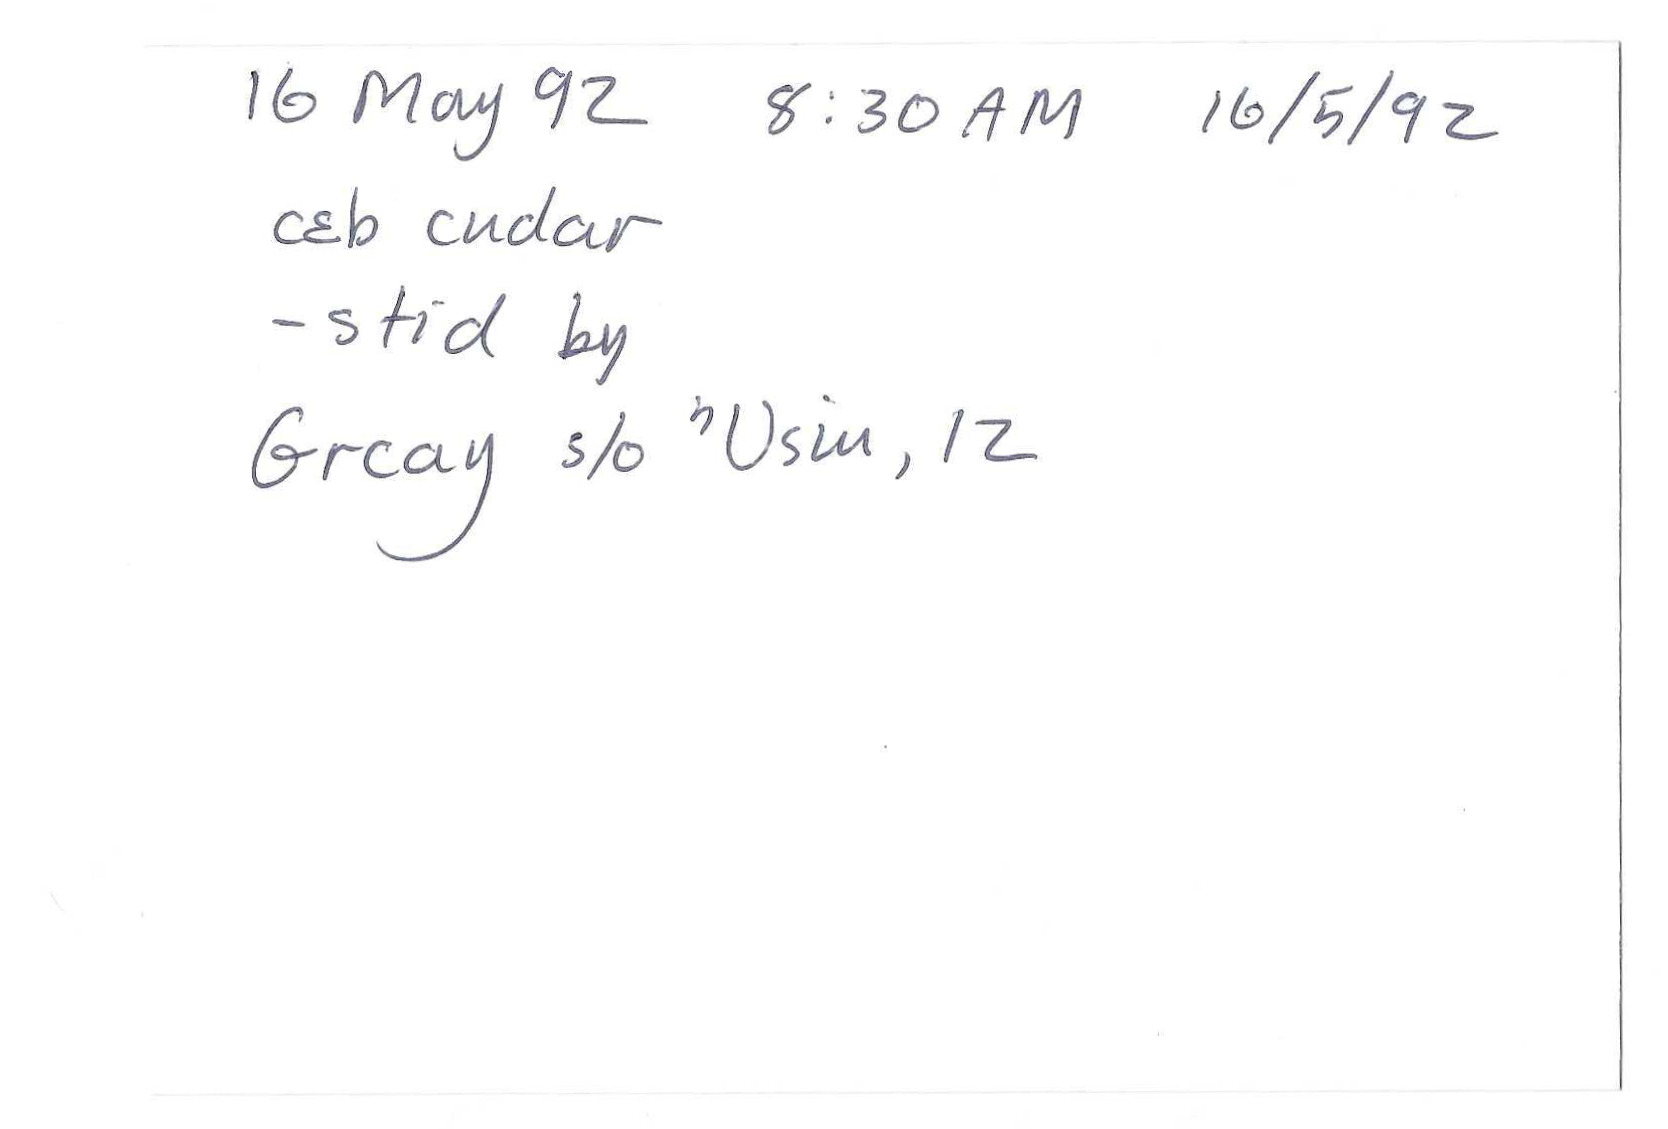 16 May 92 8:30 AM 16/5/92
cɛb cudar
- stid by
Grcay s/o "Usin, 12